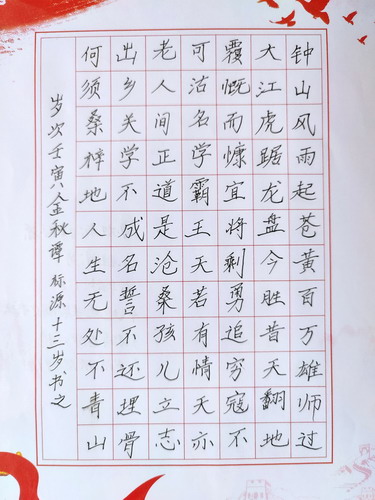 钟山风雨起苍黄百万雄师过
大江虎踞龙盘今胜昔天翻地
覆慨而慷宜将剩勇追穷寇不
可沽名学霸王天若有情天亦
老人间正道是沧桑孩儿立志
出乡关学不成名誓不还埋骨
何须桑梓地人生无处不青山
岁次壬寅金秋谭标源十三岁书之